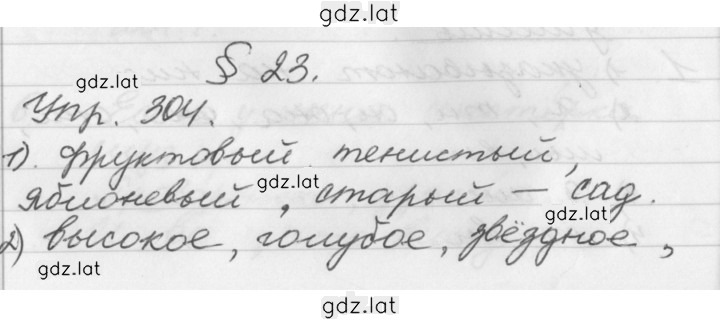 gdz.lat
§ 23.
gdz.lat
Упр. 304.
1). фруктовый тенистый,
яблоневый, старый — сад.
gdz.lat
gdz.lat
2) высокое, голубое, звёздное,
gdz.lat
gdz.lat